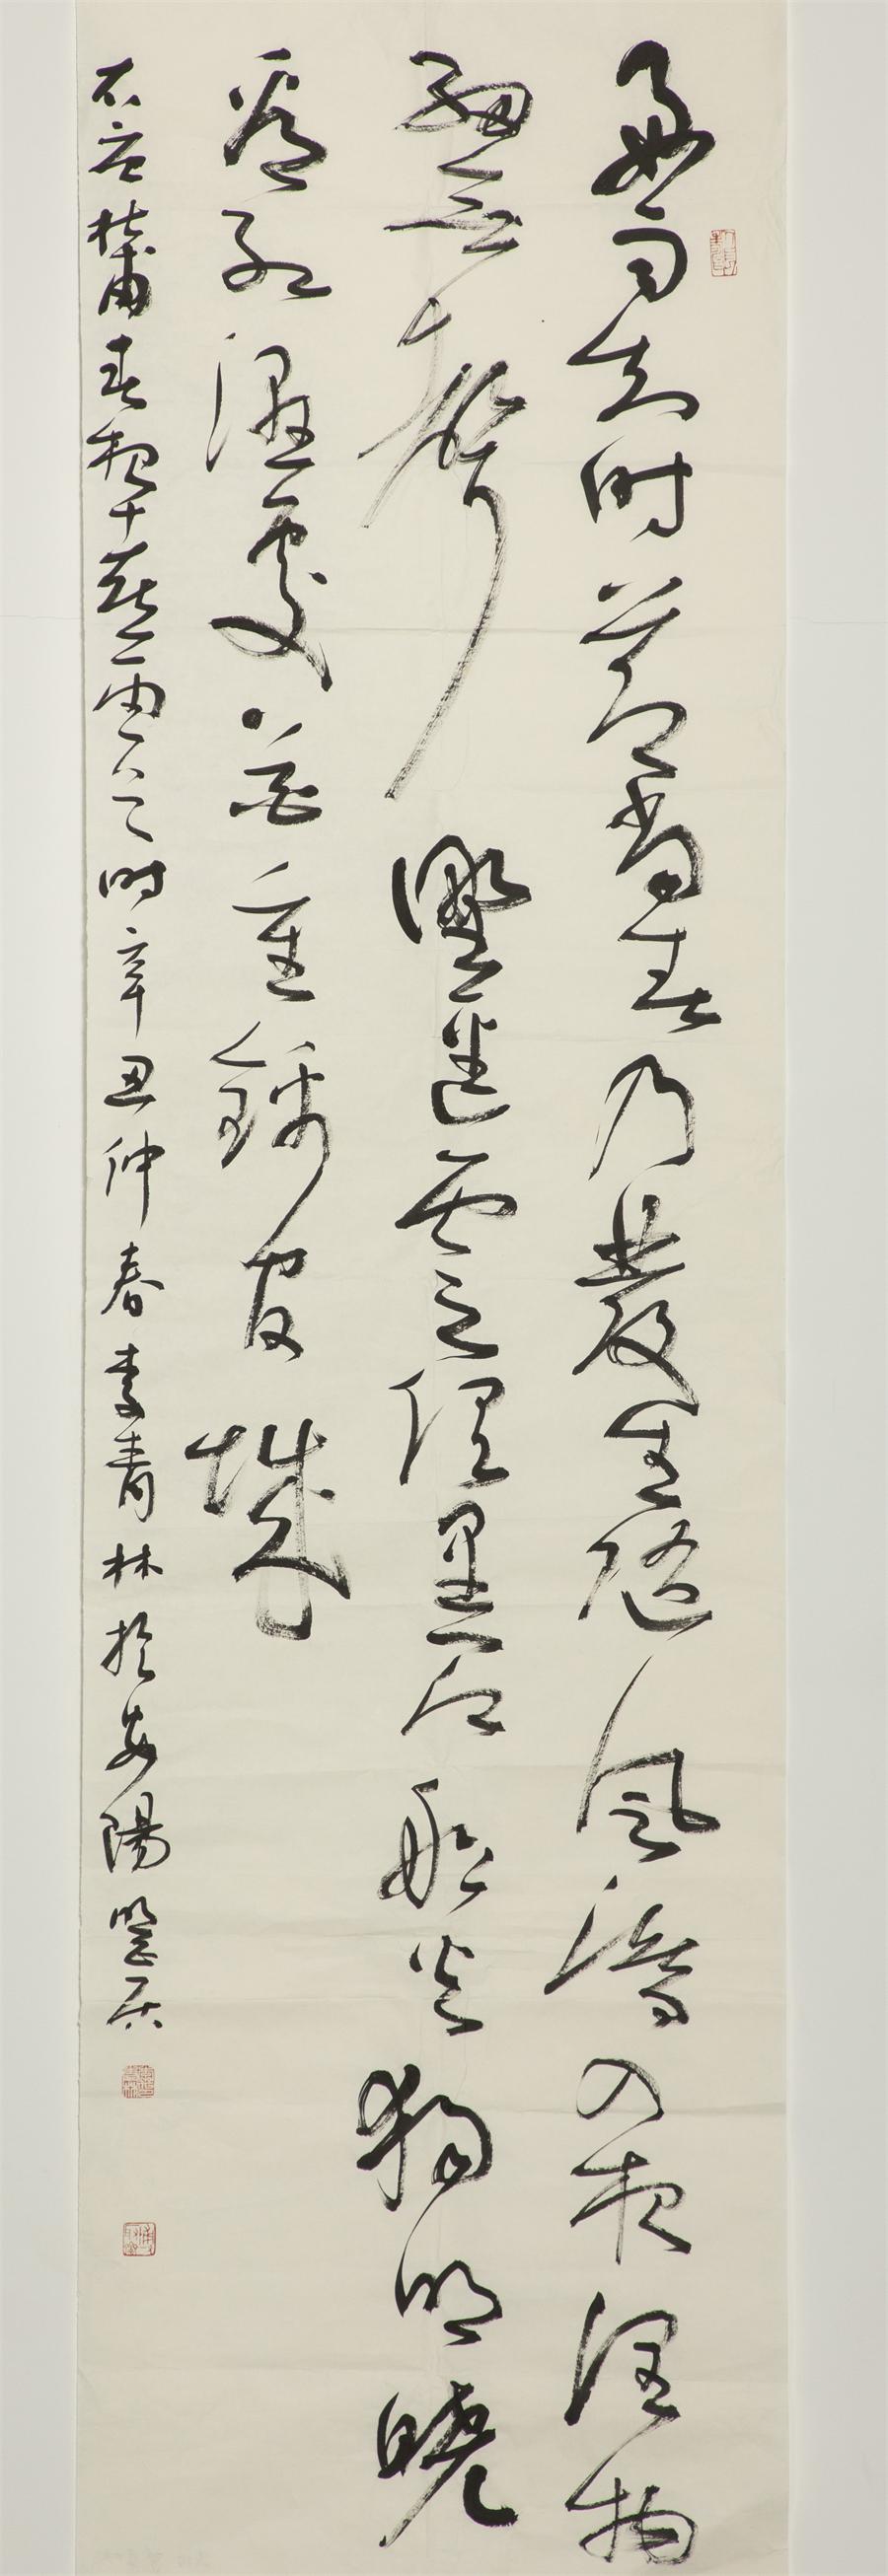 好雨知時節當春乃發生隨風潛入夜潤物
細無聲野徑雲俱黑江船火獨明曉
看紅濕處花重錦官城
右杜甫春夜喜雨之時辛丑仲春李青林於安陽居